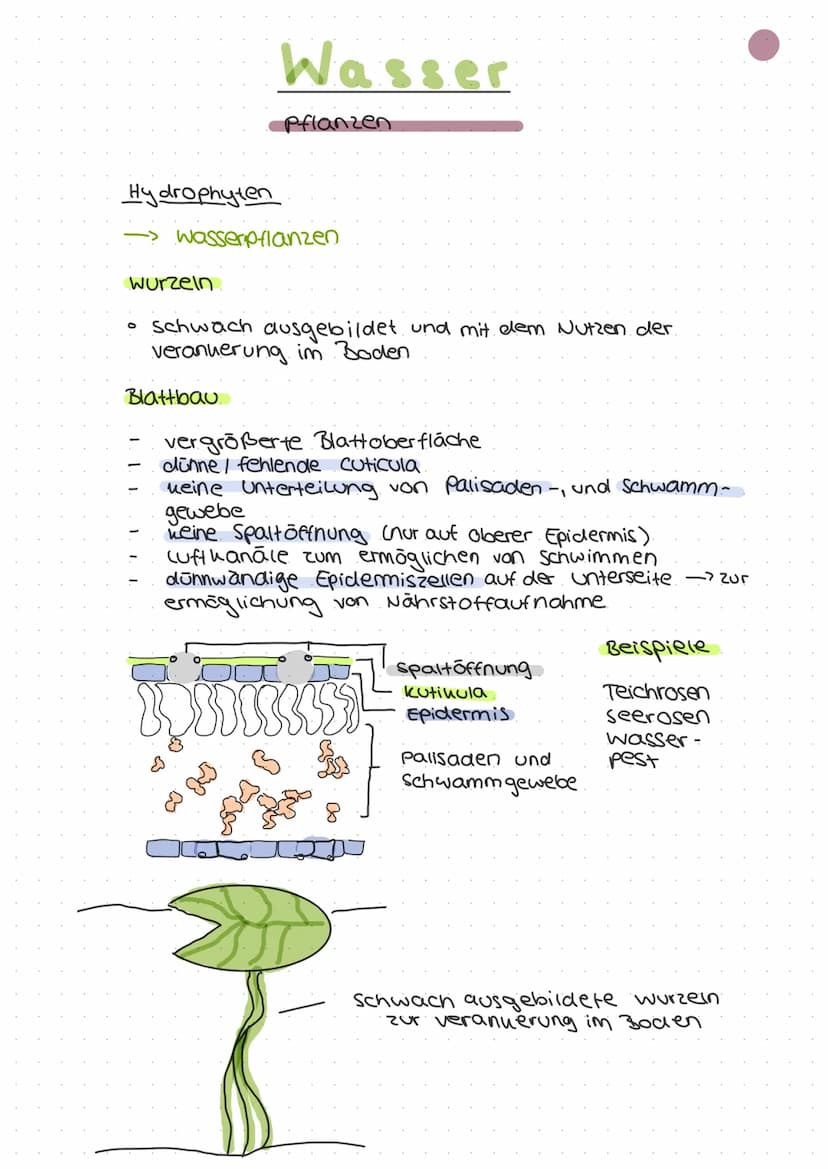 Wasser
pflanzen
Hydrophyten
→ Wasserpflanzen
Wurzeln
• schwach ausgebildet und mit dem Nutzen der
verankerung im Boden
Blattbau
- vergrößerte Blattoberfläche
- dünne / fehlende Cuticula
- keine Unterteilung von Palisaden-, und Schwamm-
gewebe
- keine Spaltöffnung (nur auf oberer Epidermis)
- Luftkanäle zum ermöglichen von schwimmen
- dünnwändige Epidermiszellen auf der Unterseite → zur
ermöglichung von Nährstoffaufnahme
Spaltöffnung
Kutikula
Epidermis
Palisaden und
Schwammgewebe
Beispiele
Teichrosen
Seerosen
Wasser-
pest
schwach ausgebildete Wurzeln
zur verankerung im Boden